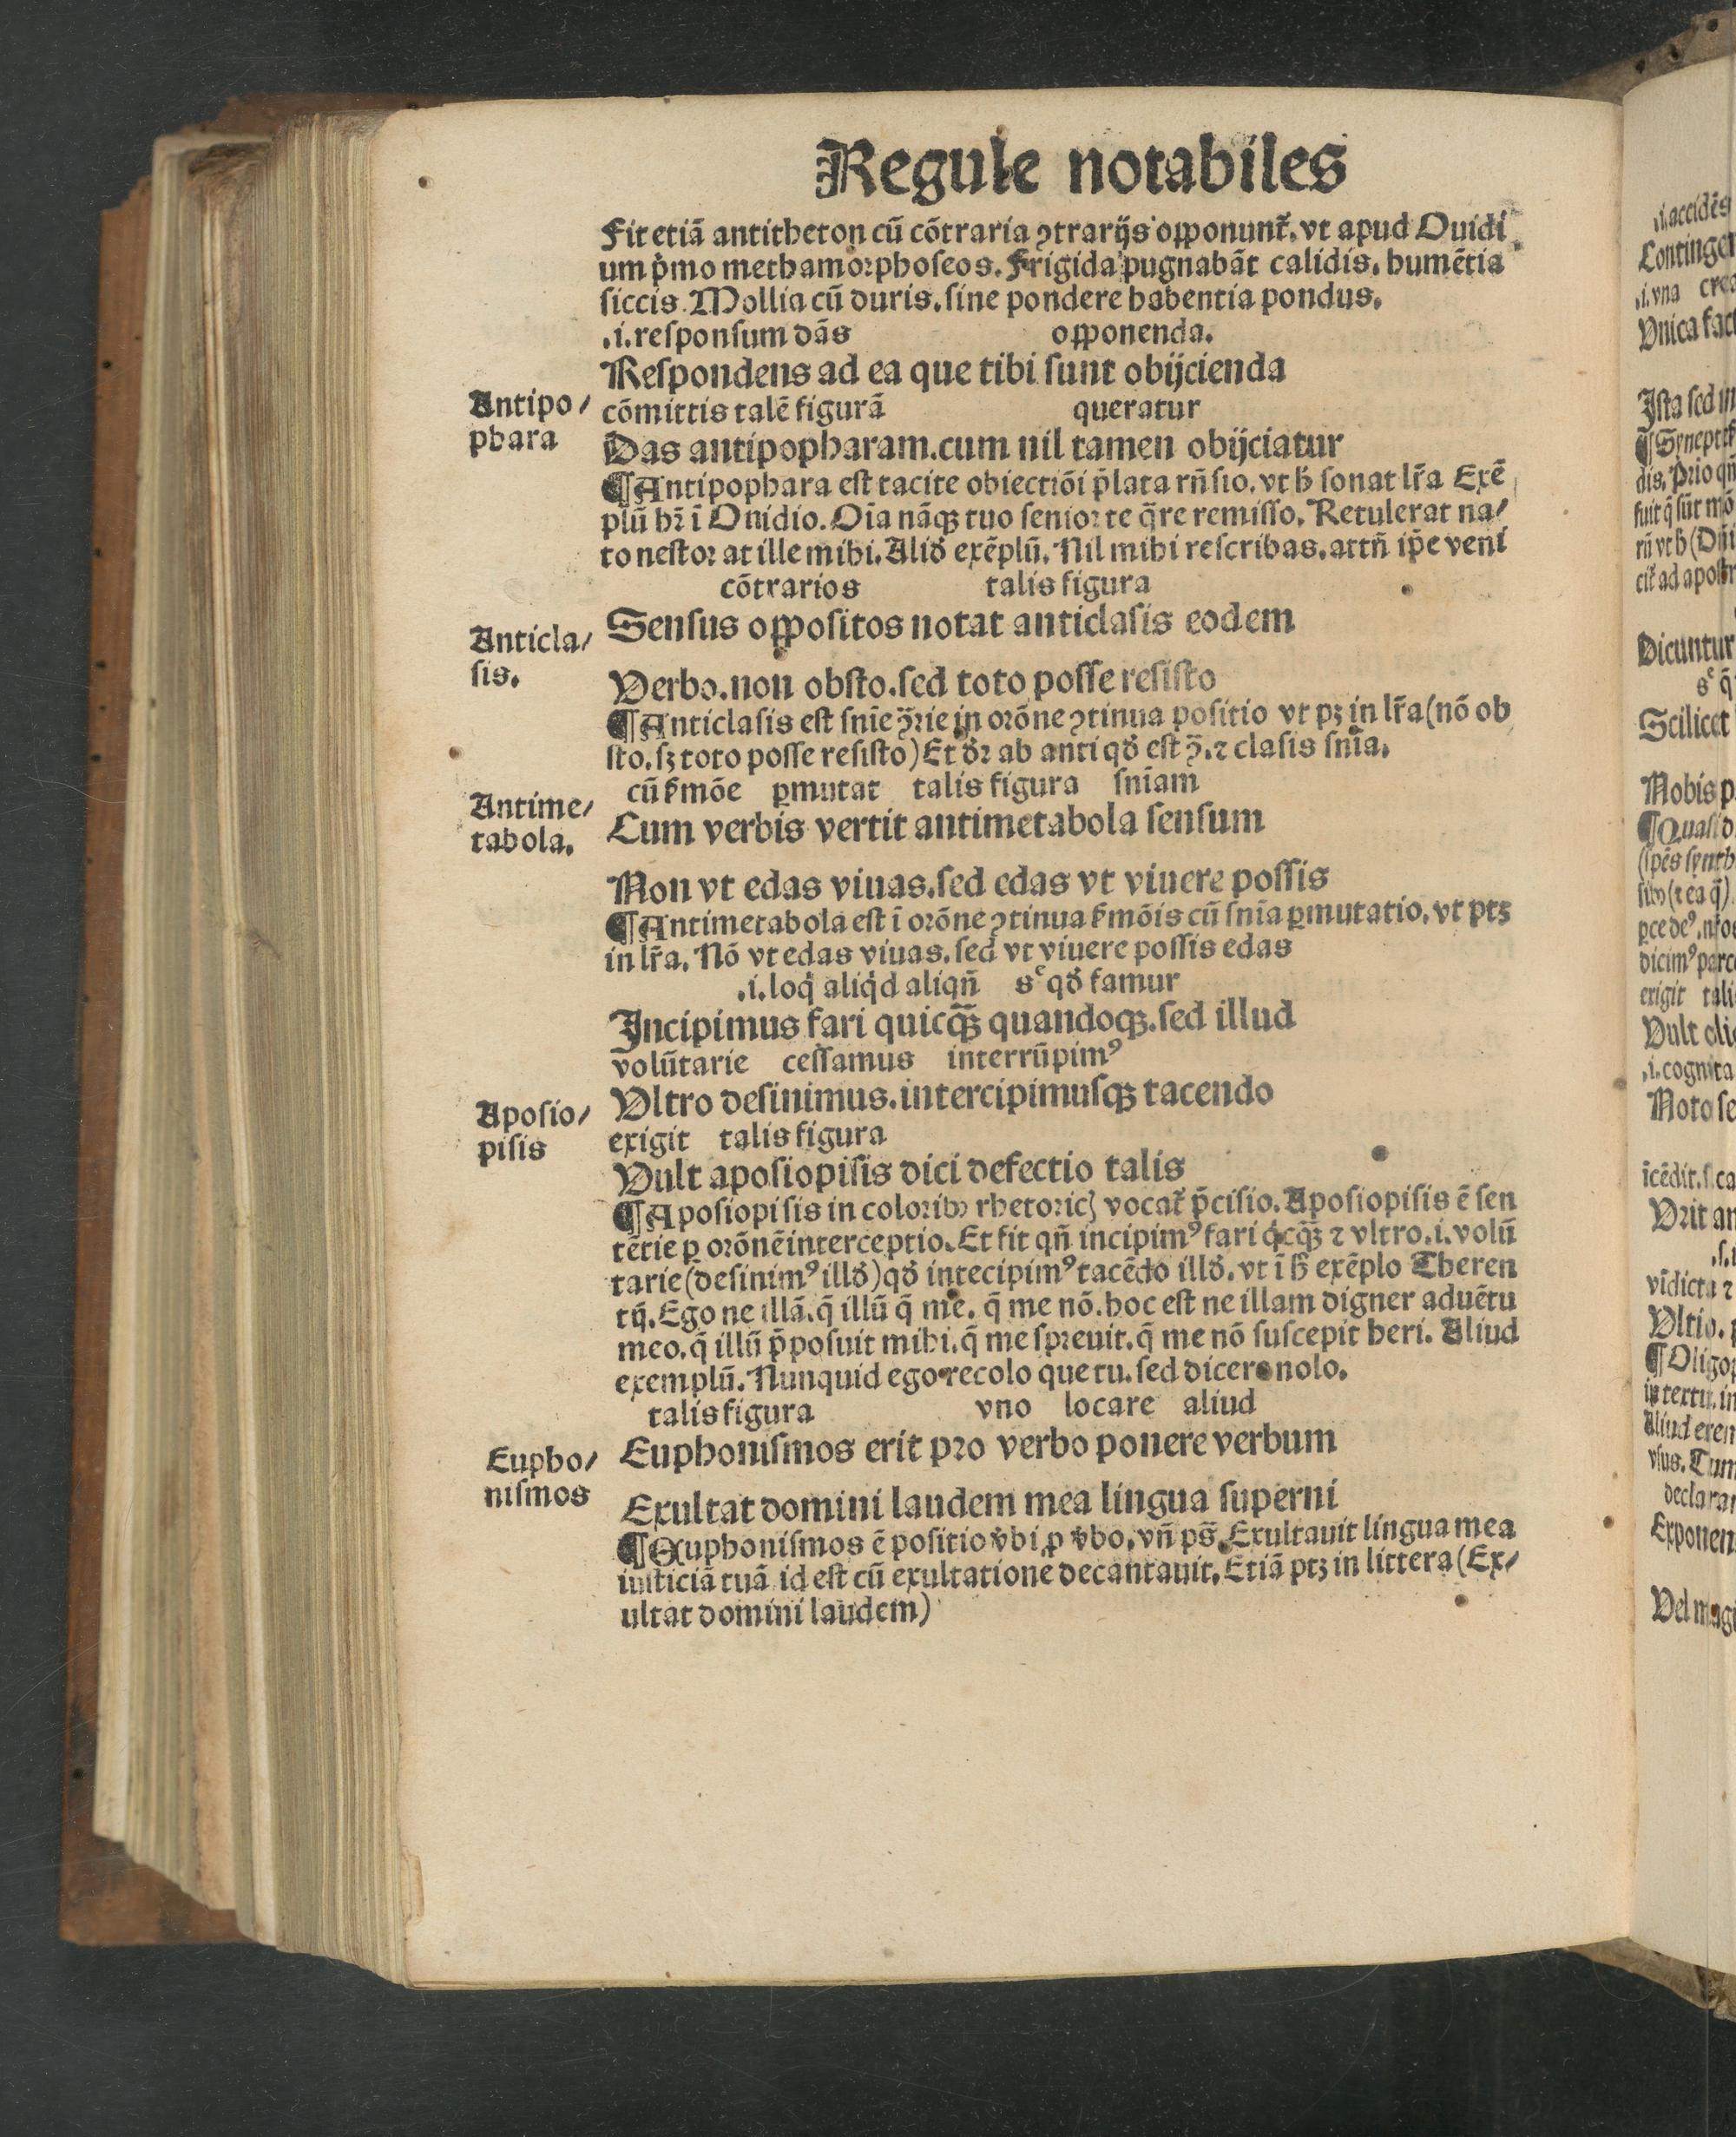 Regule notabiles
Fit etiã antitheton cũ cõtraria ꝯtrarijs opponunt᷑. vt apud Ouidi
um pͥmo methamorphoseos. Frigida pugnabãt calidis. humẽtia
siccis. Mollia cũ duris. sine pondere habentia pondus.
.i. responsum dãs opponenda.
Respondens ad ea que tibi sunt obijcienda
Antipo/
phara
cõmittis talẽ figurã queratur
Das antipopharam. cum nil tamen obijciatur
¶ Antipophara est tacite obiectiõi p̃lata rñsio. vt hͦ sonat lr̃a Exẽ
plũ hꝛ̃ ĩ Ouidio. Oĩa nãqꝫ tuo senior te q̃re remisso. Retulerat na/
to nestor at ille mihi. Aliđ exẽplũ. Nil mihi rescribas. attñ ip̃e veni
cõtrarios talis figura
Anticla/
sis.
Sensus oppositos notat anticlasis eodem
Verbo. non obsto. sed toto posse resisto
¶ Anticlasis est sñie ꝯ̃rie in orõne ꝯtinua positio vt pꝫ in lr̃a (nõ ob
sto. sꝫ toto posse resisto) Et đꝛ ab anti qđ est ꝯ̃. ⁊ clasis sñia.
cũ s̃mõe ꝑmutat talis figura sñiam
Antime/
tabola.
Cum verbis vertit antimetabola sensum
Non vt edas viuas. sed edas vt viuere possis
¶ Antimetabola est ĩ orõne ꝯtinua s̃mõis cũ sñia ꝑmutatio. vt ptꝫ
in lr̃a. Nõ vt edas viuas. sed vt viuere possis edas
.i. loqͥ aliqͥd aliqñ sͨ qđ famur
Incipimus fari quicq̃ꝫ quandoqꝫ. sed illud
volũtarie cessamus interrũpimꝰ
Aposio/
pisis
Vltro desinimus. intercipimusqꝫ tacendo
exigit talis figura
Vult aposiopisis dici defectio talis
¶ Aposiopisis in coloribꝰ rhetoricꝭ vocat᷑ p̃cisio. Aposiopisis ẽ sen
tẽtie ꝑ orõnẽ interceptio. Et fit qñ incipimꝰ fari qͥcq̃ꝫ ⁊ vltro. i. volũ
tarie (desinimꝰ illđ) qđ intecipimꝰ tacẽdo illđ. vt ĩ hͦ exẽplo Theren
tij. Ego ne illã. q̃ illũ q̃ me. q̃ me nõ. hoc est ne illam digner aduẽtu
meo. q̃ illũ p̃posuit mihi. q̃ me spreuit. q̃ me nõ suscepit heri. Aliud
exemplũ. Nunquid ego recolo que tu. sed dicere nolo.
talis figura vno locare aliud
Eupho/
nismos
Euphonismos erit pro verbo ponere verbum
Exultat domini laudem mea lingua superni
¶ Euphonismos ẽ positio v̓bi ꝓ v̓bo. vñ ps̃. Exultauit lingua mea
iusticiã tuã id est cũ exultatione decantauit. Etiã ptꝫ in littera (Ex/
ultat domini laudem)